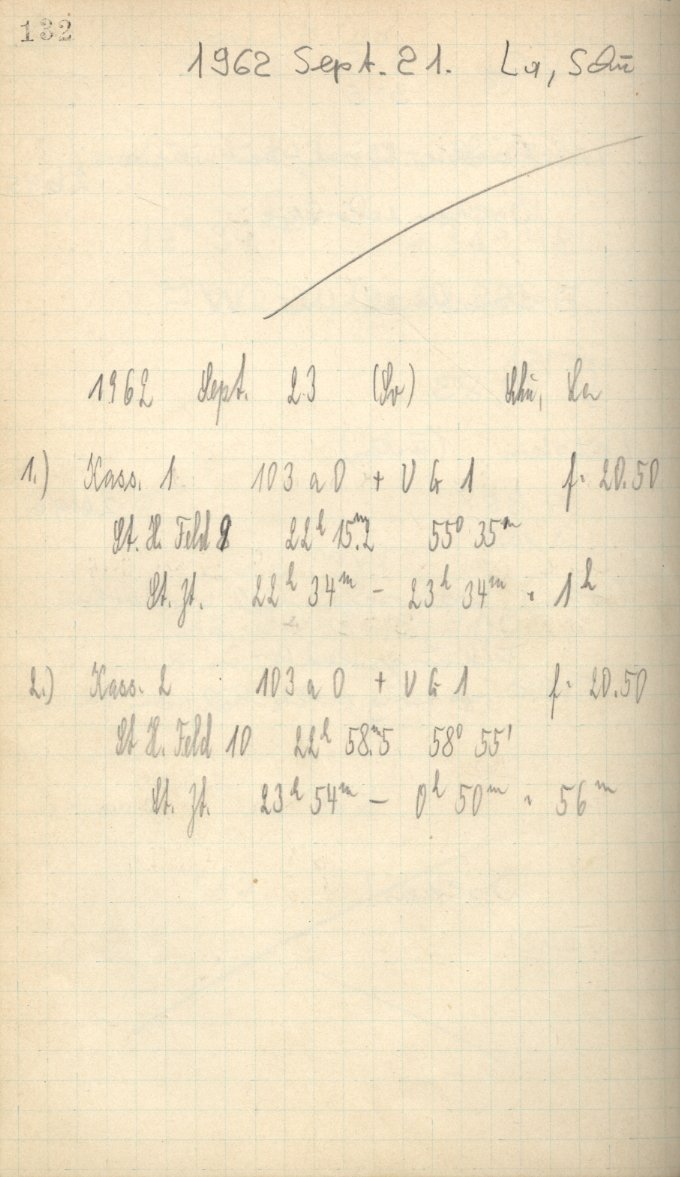 132
1962 Sept. 21. La, Schü
1962 Sept. 23 (So) Schü, La
1.) Kass. 1 103 a O + V G 1 f = 20.50
St. H. Feld 9 22ʰ 15ᵐ.2 55° 35ᵐ
St. Zt. 22ʰ 34ᵐ - 23ʰ 34ᵐ = 1ʰ
2.) Kass. 2 103 a O + V G 1 f = 20.50
St H. Feld 10 22ʰ 58ᵐ.5 58° 55'
St. Zt. 23ʰ 54ᵐ - 0ʰ 50ᵐ = 56ᵐ